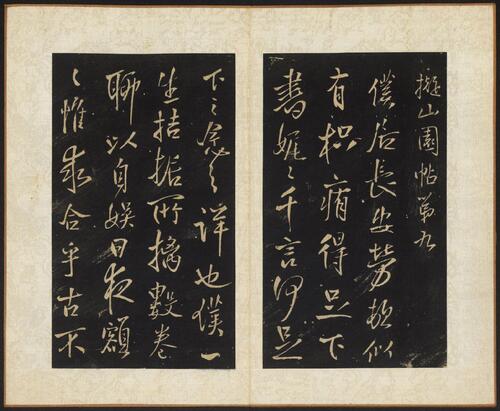 擬山園帖第九
僕居長安勞頓似
有積痟得足下
書娓〻千言何足
下之念之詳也僕一
生拮据所摛數卷
聊以自娛日夜額
〻惟求合乎古不